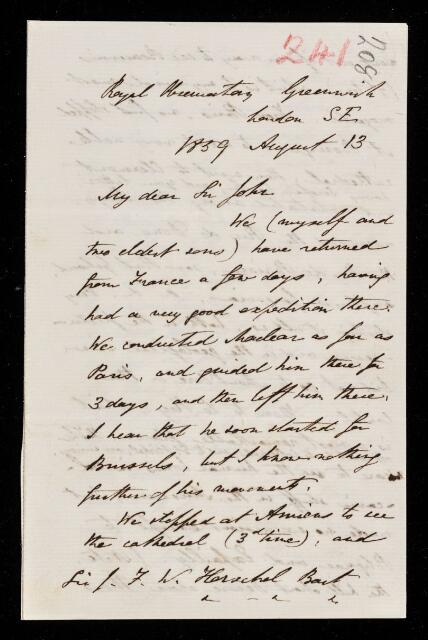 241
Royal Observatory Greenwich
London S.E.
1859 August 13
My dear Sir John
We (myself and
two eldest sons) have returned
from France a few days, having
had a very good expedition there.
We conducted Maclear as far as
Paris, and guided him there for
3 days, and then left him there.
I hear that he soon started for
Brussels, but I know nothing
further of his movements.
We stopped at Amiens to see
the cathedral (3d time), and
Sir J. F. W. Herschel Bart